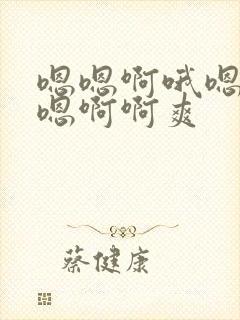 嗯嗯啊哦嗯
嗯啊啊爽
蔡健康